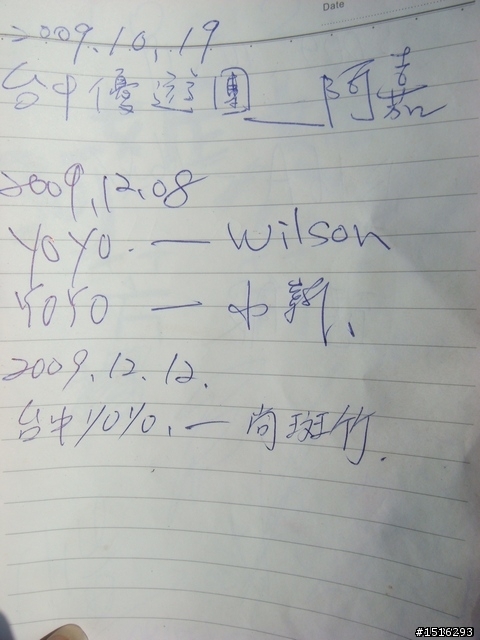 Date
2009.10.19
台中優遊團__阿嘉
2009.12.08
YOYO.— Wilson
YOYO — 小新、
2009.12.12.
台中YOYO.—尚斑竹.
#1516293